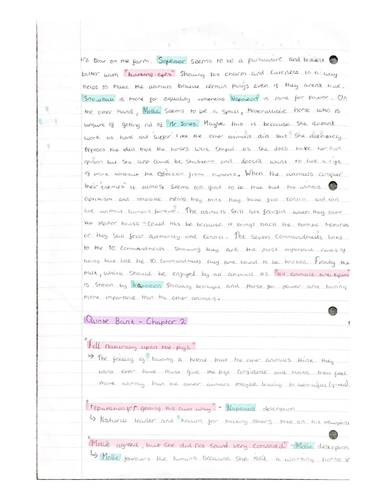 boar on the farm. Squealer seems to be a persuasive and brilliant
talker with "twinkling eyes" showing his charm and cuteness in a way
helps to make the animals believe certain things even if they aren't true.
Snowball is more for equality whereas Napoleon is more for power. On
the other hand, Mollie seems to be a spoilt, materialistic horse who is
unsure of getting rid of Mr Jones. Maybe this is because she doesn't
work as hard and suffer like the other animals did but she
opposes the idea that the horses were stupid as she does have her own
opinion but she also could be stubborn and doesn't want to live a life
of work without the affection from humans. When the animals conquer
their "enemies" it almost seems too good to be true but the animals
optimism and makes them they have full control and can
live without humans forever. The animals still feel when they enter
the Manor house - could this be because it brings back the memories
or they still fear authority and control. The Seven Commandments links
to the 10 Commandments showing they are the most important rules
being but like the 10 Commandments they are bound to be broken. Finally the
milk, which should be enjoyed by all animals as "all animals are equal"
is stolen by Napoleon showing betrayal and thirst for power and being
more important than the other animals.
Quote Bank - Chapter 2
"Fell naturally upon the pigs"
↳ The feeling of having a talent that the other animals think they
were ever have must give the pigs confidence and makes them feel
more worthy than the other animals maybe leading to
"reputation for getting his own way" - Napoleon description
↳ Natural leader and known for making others take on his viewpoint
"Mollie agreed, but she did not sound very convinced" - Mollie description
↳ Mollie favours the humans because she isn't a working horse